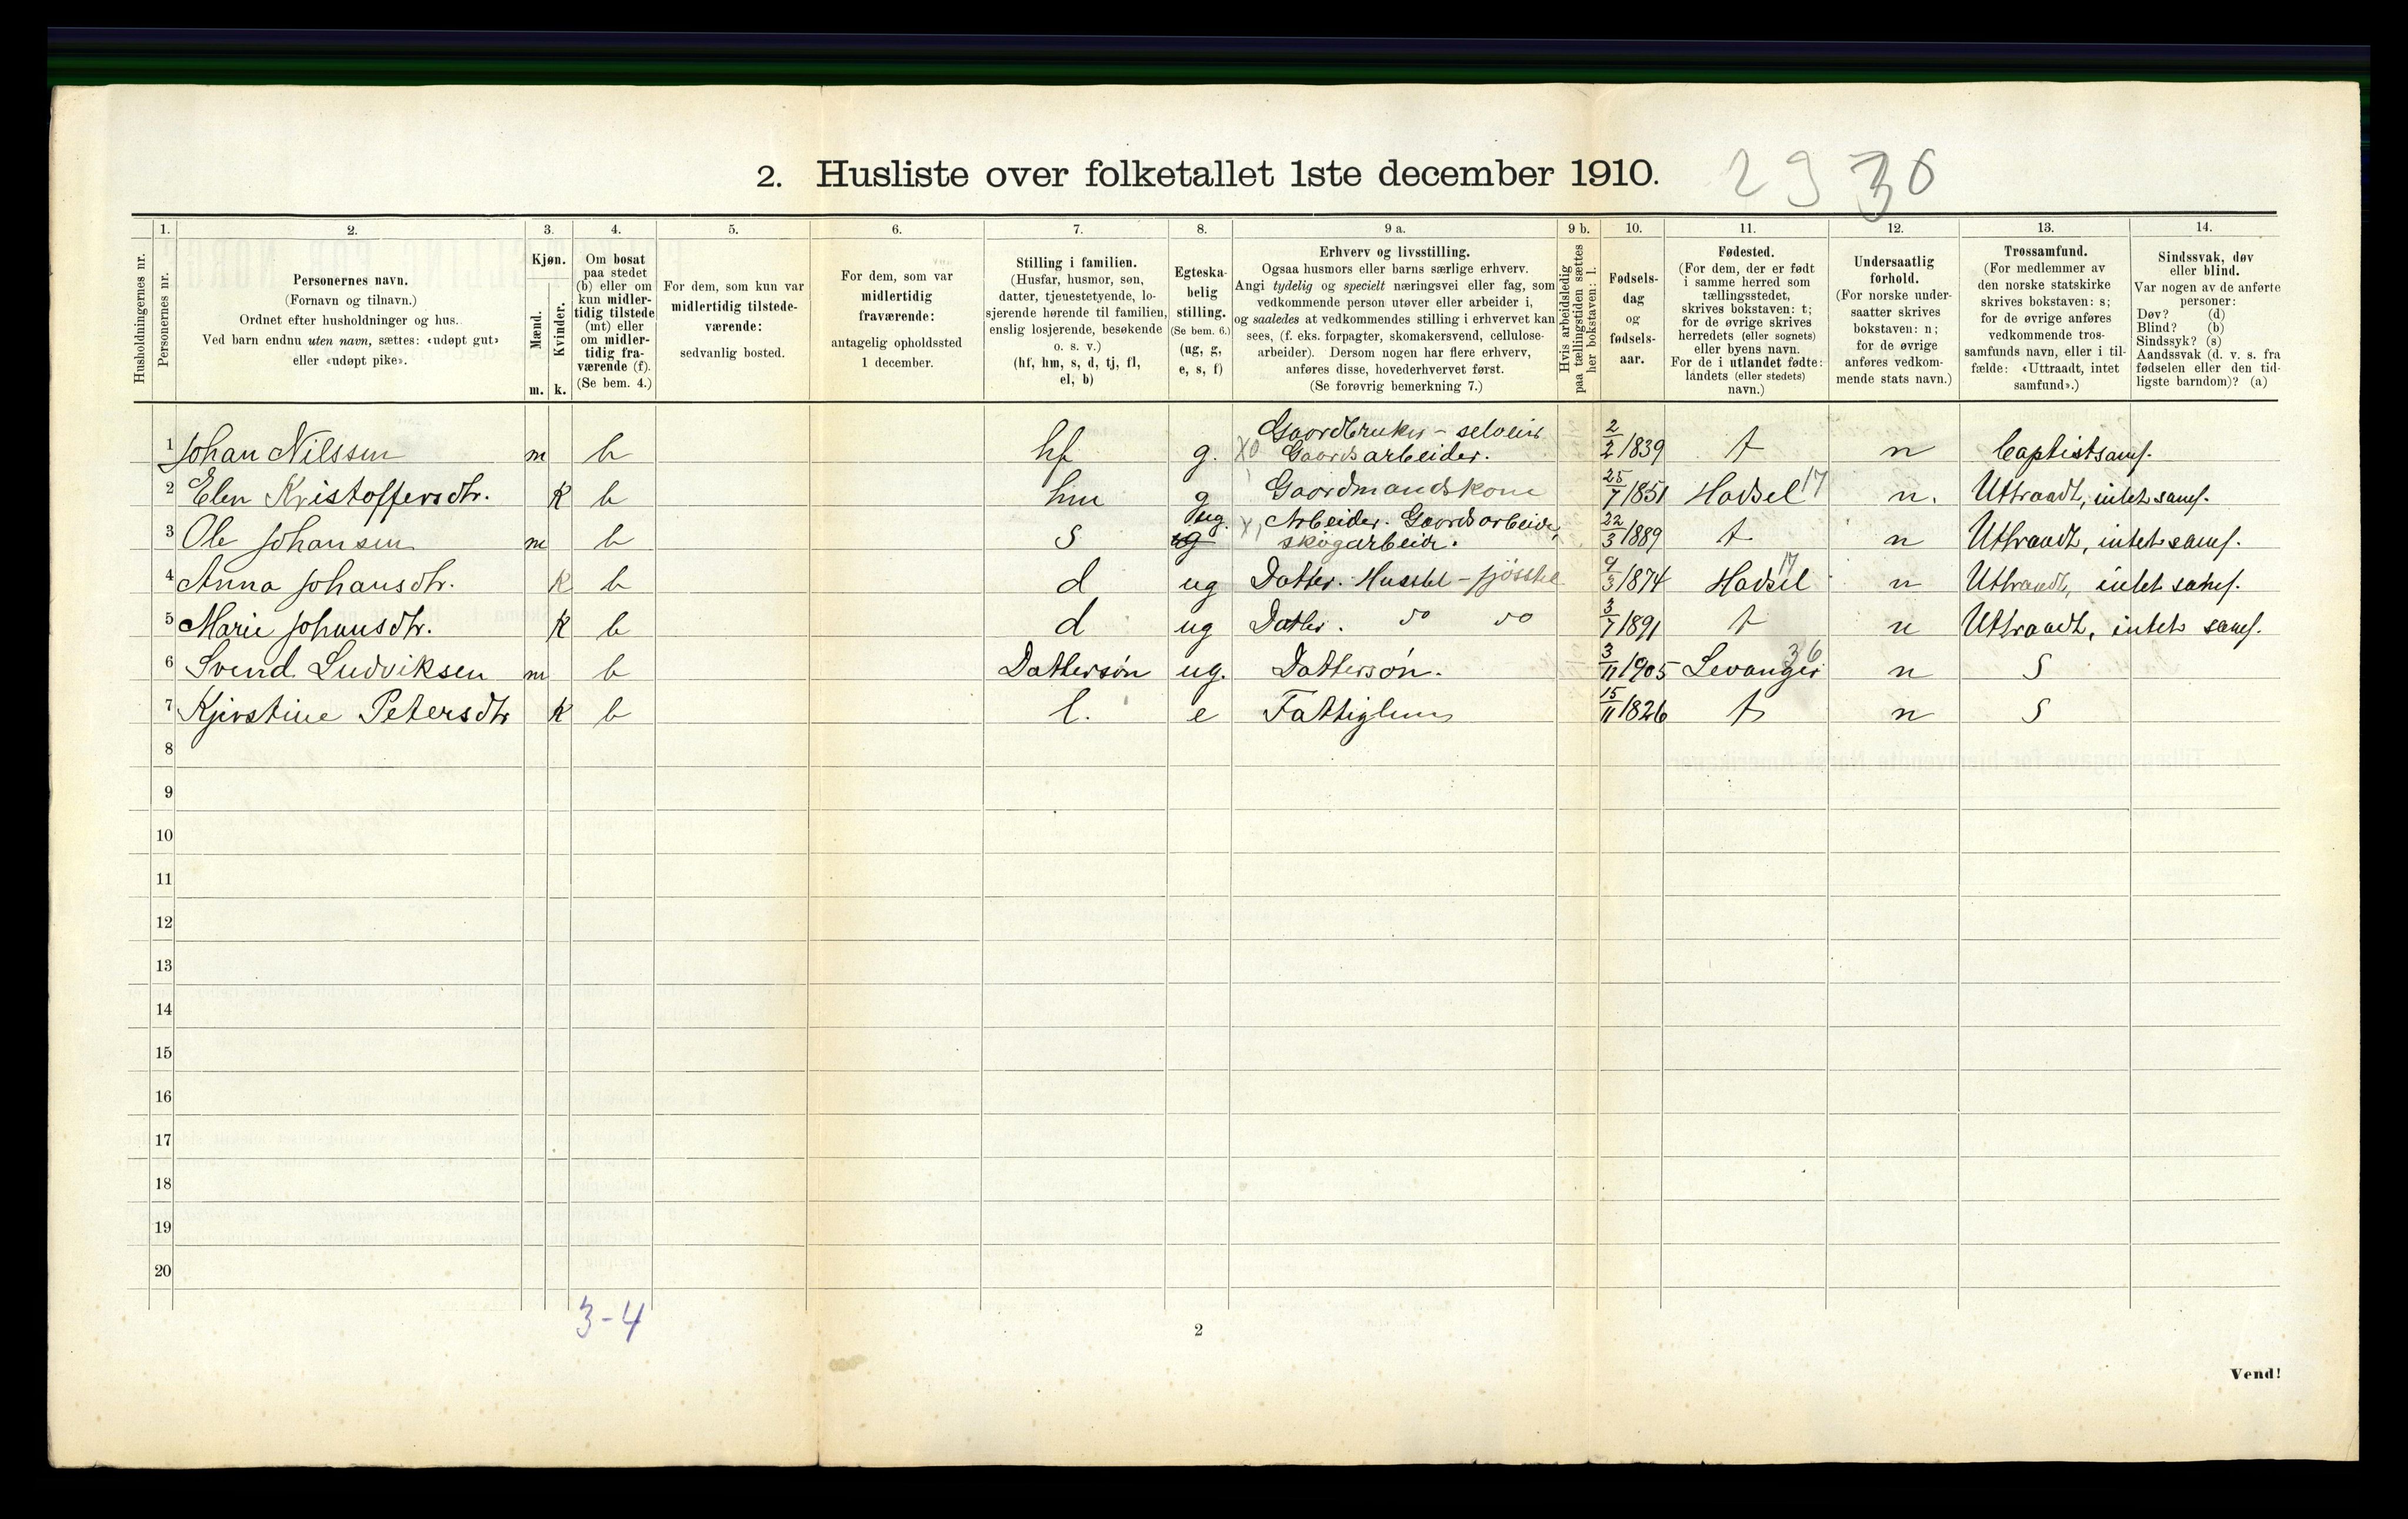 2. Husliste over folketallet 1ste december 1910. 29 30
Husholdningernes nr.
1. Personernes nr.
2. Personernes navn. (Fornavn og tilnavn.) Ordnet efter husholdninger og hus. Ved barn endnu uten navn, sættes: «udøpt gut» eller «udøpt pike».
3. Kjøn. Mænd. m. Kvinder. k.
4. Om bosat paa stedet (b) eller om kun midlertidig tilstede (mt) eller om midlertidig fraværende (f). (Se bem. 4.)
5. For dem, som kun var midlertidig tilstedeværende: sedvanlig bosted.
6. For dem, som var midlertidig fraværende: antagelig opholdssted 1 december.
7. Stilling i familien. (Husfar, husmor, søn, datter, tjenestetyende, losjerende hørende til familien, enslig losjerende, besøkende o. s. v.) (hf, hm, s, d, tj, fl, el, b)
8. Egteskabelig stilling. (Se bem. 6.) (ug, g, e, s, f)
9 a. Erhverv og livsstilling. Ogsaa husmors eller barns særlige erhverv. Angi tydelig og specielt næringsvei eller fag, som vedkommende person utøver eller arbeider i, og saaledes at vedkommendes stilling i erhvervet kan sees, (f. eks. forpagter, skomakersvend, cellulosearbeider). Dersom nogen har flere erhverv, anføres disse, hovederhvervet først. (Se forøvrig bemerkning 7.)
9 b. Hvis arbeidsledig paa tællingstiden sættes her bokstaven: l.
10. Fødselsdag og fødselsaar.
11. Fødested. (For dem, der er født i samme herred som tællingsstedet, skrives bokstaven: t; for de øvrige skrives herredets (eller sognets) eller byens navn. For de i utlandet fødte: landets (eller stedets) navn.)
12. Undersaatlig forhold. (For norske undersaatter skrives bokstaven: n; for de øvrige anføres vedkommende stats navn.)
13. Trossamfund. (For medlemmer av den norske statskirke skrives bokstaven: s; for de øvrige anføres vedkommende trossamfunds navn, eller i tilfælde: «Uttraadt, intet samfund».)
14. Sindssvak, døv eller blind. Var nogen av de anførte personer: Døv? (d) Blind? (b) Sindssyk? (s) Aandssvak (d. v. s. fra fødselen eller den tidligste barndom)? (a)
1 Johan Nilssen m b hf g. X0 Gaordbruker - seloeier Gaordsarbeider. 2/2 1839 t n baptistsamf.
2 Elen Kristoffersdtr. K b hm g Gaordmandskone 25/7 1851 Hadsel 17 n. Uttraadt, intet samf.
3 Ole Johansen m b s ug. Arbeider. Gaordsarbeider, skogarbeider. 22/3 1889 t n Uttraadt, intet samf.
4 Anna Johansdtr. K b d ug Datter. Husstel - fjösstel 9/3 1874 Hadsel 17 n Uttraadt, intet samf.
5 Marie Johansdtr. K b d ug Datter. do do 3/7 1891 t n Uttraadt, intet samf.
6 Svend Ludviksen m b Dattersön ug. Dattersön. 3/11 1905 Levanger 36 n S
7 Kjerstine Petersdtr K b l. e Fattiglem 15/11 1826 t n S
8
9
10
11
12
13
14
15
16
17
18
19
20
3-4
2
Vend!